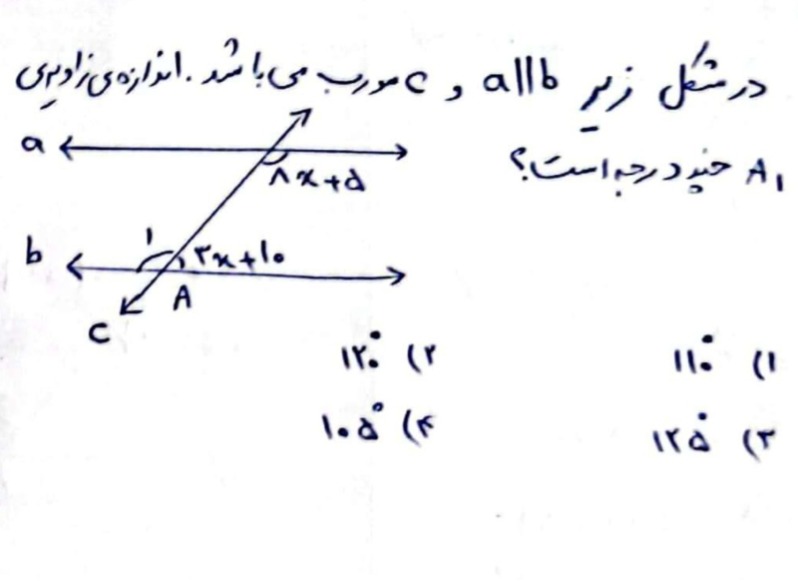 در شکل زیر a||b و c مورب می باشد. اندازه‌ی زاویه‌ی
A₁ چند درجه است؟
a
۸x+۵
b
۱
۳x+۱۰
A
c
۱) ۱۱۰°
۲) ۱۲۰°
۳) ۱۲۵°
۴) ۱۰۵°